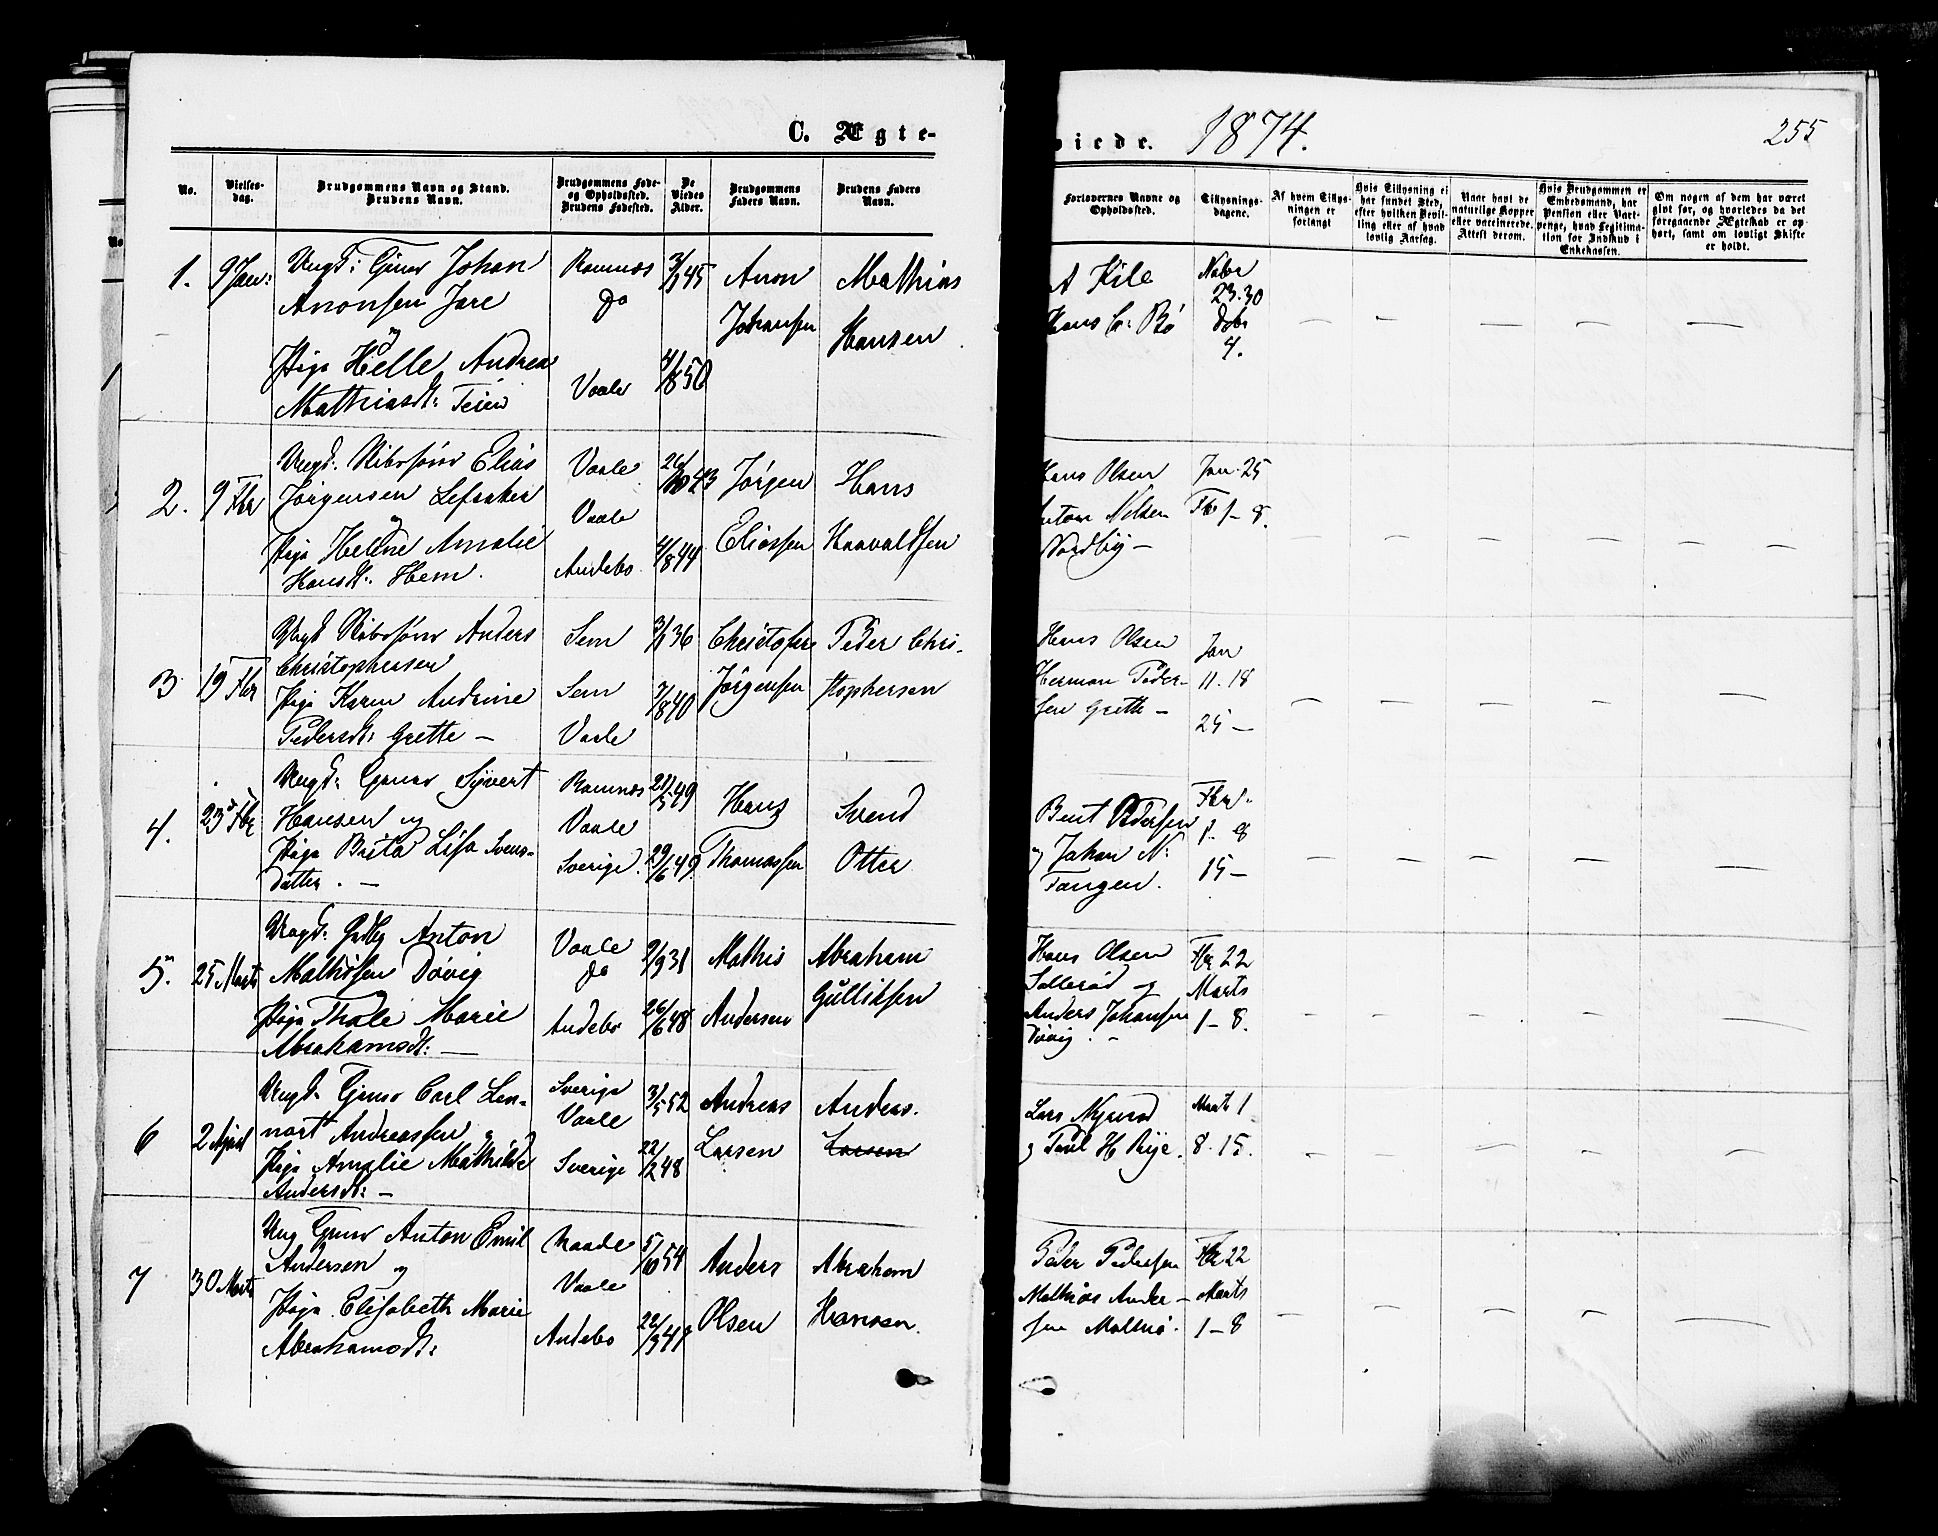 C. Ægte-
viede. 1874. 255
No.
Vielses-
dag.
Brudgommens Navn og Stand.
Brudens Navn.
Brudgommens Føde-
og Opholdssted.
Brudens Fødested.
De
Viedes
Alder.
Brudgommens
Faders Navn.
Brudens Faders
Navn.
Forlovernes Navne og
Opholdssted.
Tillysnings-
dagene.
Af hvem Tillys-
ningen er
forlangt
Hvis Tillysning ei
har fundet Sted,
efter hvilken Bevil-
ling eller af hvad
lovlig Aarsag.
Naar havt de
naturlige Kopper
eller vaccinerede.
Attest derom.
Hvis Brudgommen er
Embedsmand, har
Pension eller Vart-
penge, hvad Legitima-
tion for Indskud i
Enkekassen.
Om nogen af dem har været
givt før, og hvorledes da det
foregaaende Ægteskab er op-
hørt, samt om lovligt Skifte
er holdt.
1. 9 Jan:
Ungk: Johan
Aronsen Jare
og
Pige Helle Andrea
Mathiasdt: Teien
Ramnæs
do
Vaale
3/1 45
4/8 50
Aron
Johansen
Mathias
Hansen
A Kile
Hans C: Bø
Nobr
23. 30
Dcbr
4.
2. 9 Fbr
Ungk. Elias
Jørgensen Lefsaker
og
Pige Helene Amalie
Hansdt: Hem.
Vaale
Vaale
Andebo
26/10 43
4/8 44
Jørgen
Eliassen
Hans
Haavaldsen
Hans Olsen
Anton Nilsen
Nordby —
Jan. 25
Fbr 1 – 8.
3 19 Fbr
Ungk Anders
Christophersen
Pige Karen Andrine
Pedersdt: Grette —
Sem
Sem
Vaale
3/1 36
7/8 40
Christofer
Jørgensen
Peder Chri-
stophersen
Hans Olsen
Herman Peder-
sen Grette —
Jan
11. 18
25 —
4. 23 Fbr
Ungk: Syvert
Hansen og
Pige Brita Lisa Svens-
datter. —
Ramnæs
Vaale
Sverige.
21/5 49
29/6 49.
Hans
Thomassen
Svend
Otter
Bent Pedersen
og Johan N:
Tangen.
Fbr.
1. 8
15 —
5. 25 Marts
Ungk: Anton
Mathisen Døvig
Pige Thale Marie
Abrahamsdt: —
Vaale
do
Andebo
2/9 31
26/6 48
Mathis
Andersen
Abraham
Gulliksen
Hans Olsen
Sollerød og
Anders Johansen
Døvig. —
Fbr 22
Marts
1 – 8.
6 2 April
Ungk. Carl Len-
nart Andreassen og
Pige Amalie Mathilde
Andersdt: —
Sverige
Vaale
Sverige
3/5 52
22/2 48
Andreas
Larsen
Anders.
Larsen
Lars Nyerød
og Paul H Rije.
Marts 1
8. 15.
7 30 Marts
Ung Anton Emil
Andersen og
Pige Elisabeth Marie
Abrahamsdt:
Vaale
Andebo
5/10 54
22/9 41
Anders
Olsen
Abraham
Hansen.
Peder Pedersen
Mathias Ander-
sen
Fbr 22
Marts
1 – 8